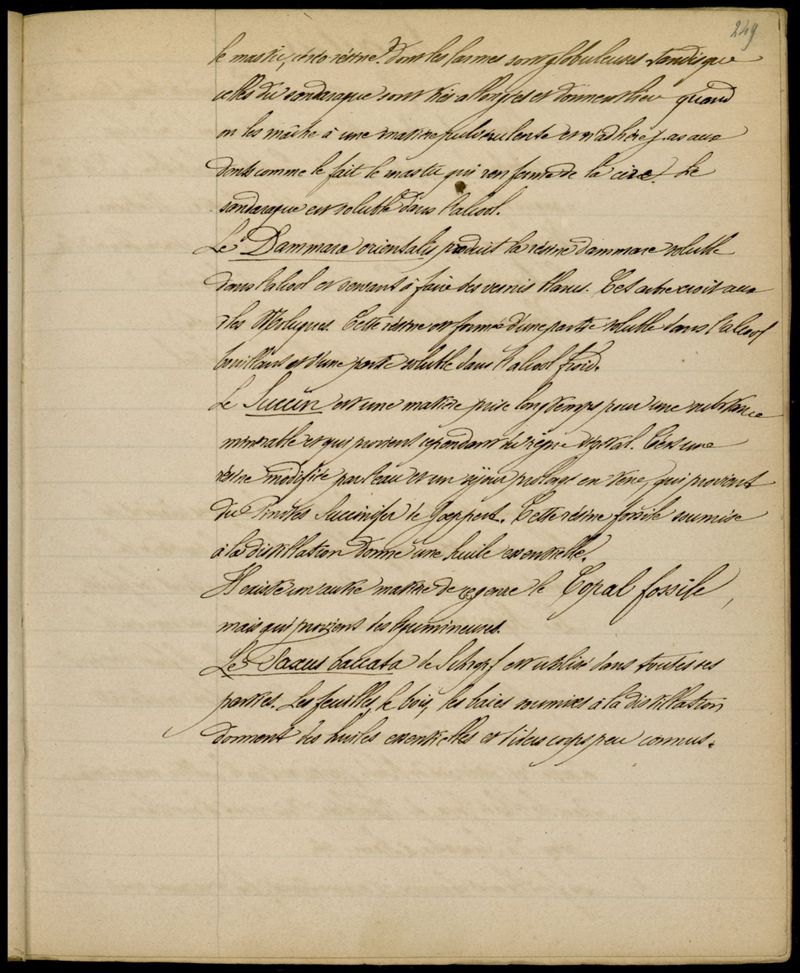 249
le mastic, cette résine dont les larmes sont globuleuses tandis que
celles du sandaraque sont très allongées et donnent lieu quand
on les mâche à une matière pulvérulente et n'adhère pas aux
dents comme le fait le mastic qui renferme de la cire. Le
sandaraque est soluble dans l'alcool.
Le Dammara orientalis produit la résine dammare soluble
dans l'alcool et servant à faire des vernis blancs. Cet arbre croit aux
îles Moluques. Cette résine est formée d'une partie soluble dans l'alcool
bouillant et d'une partie soluble dans l'alcool froid.
Le Succin est une matière prise longtemps pour une substance
minérale et qui provient cependant du règne végétal. C'est une
résine modifiée par l'eau et un séjour prolongé en terre, qui provient
du Pinites Succinifer de Goeppert. Cette résine fossile soumise
à la distillation donne une huile essentielle.
Il existe un autre matière de ce genre le Copal fossile,
mais qui provient des légumineuses.
Le Taxus baccata de est utilisé dans toutes ses
parties. Les feuilles, le bois, les baies soumises à la distillation
donnent des huiles essentielles et divers corps peu connus.